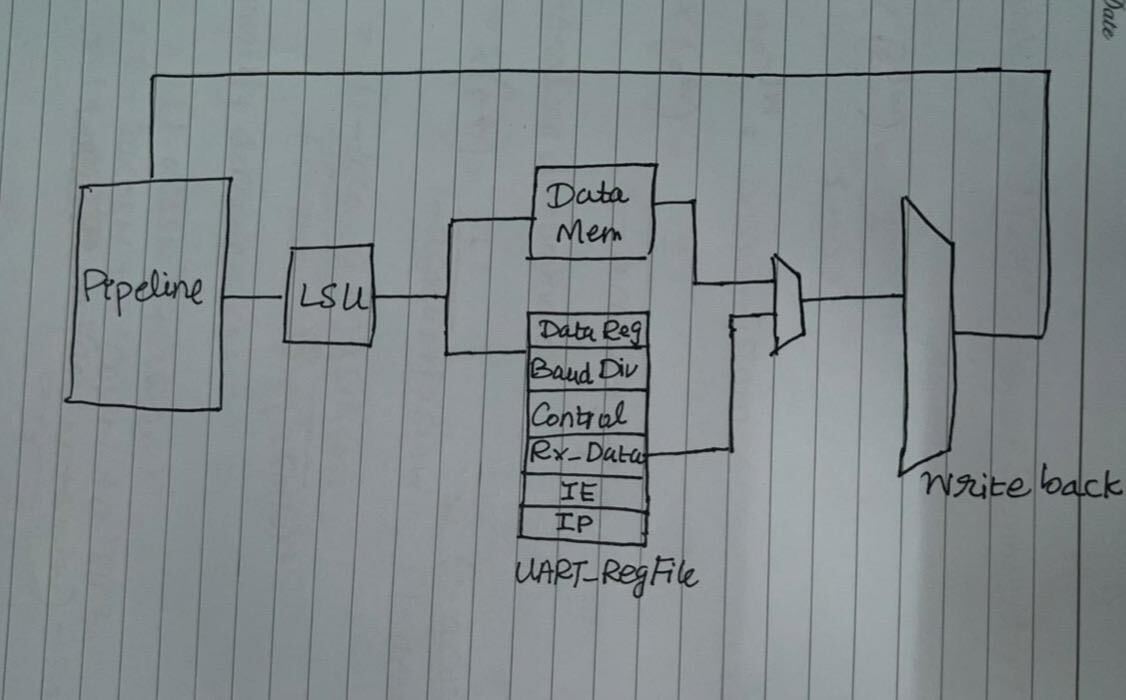 Date
Pipeline
LSU
Data
Mem
Data Reg
Baud Div
Control
Rx_Data
IE
IP
UART_RegFile
Write back